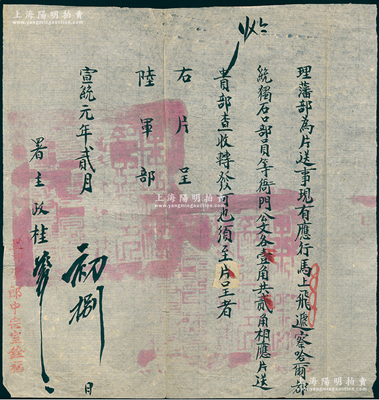 理藩部為片送事現有應行馬上飛遞察哈爾都
統獨石口部員等衙門公文各壹角共貳角相應片送
貴部查收轉發可也須至片呈者
右片呈
陸軍部
宣統元年貳月初捌日
署主政桂
郎中
上海陽明拍賣
www.yangmingauction.com
上海陽明拍賣
www.yangmingauction.com